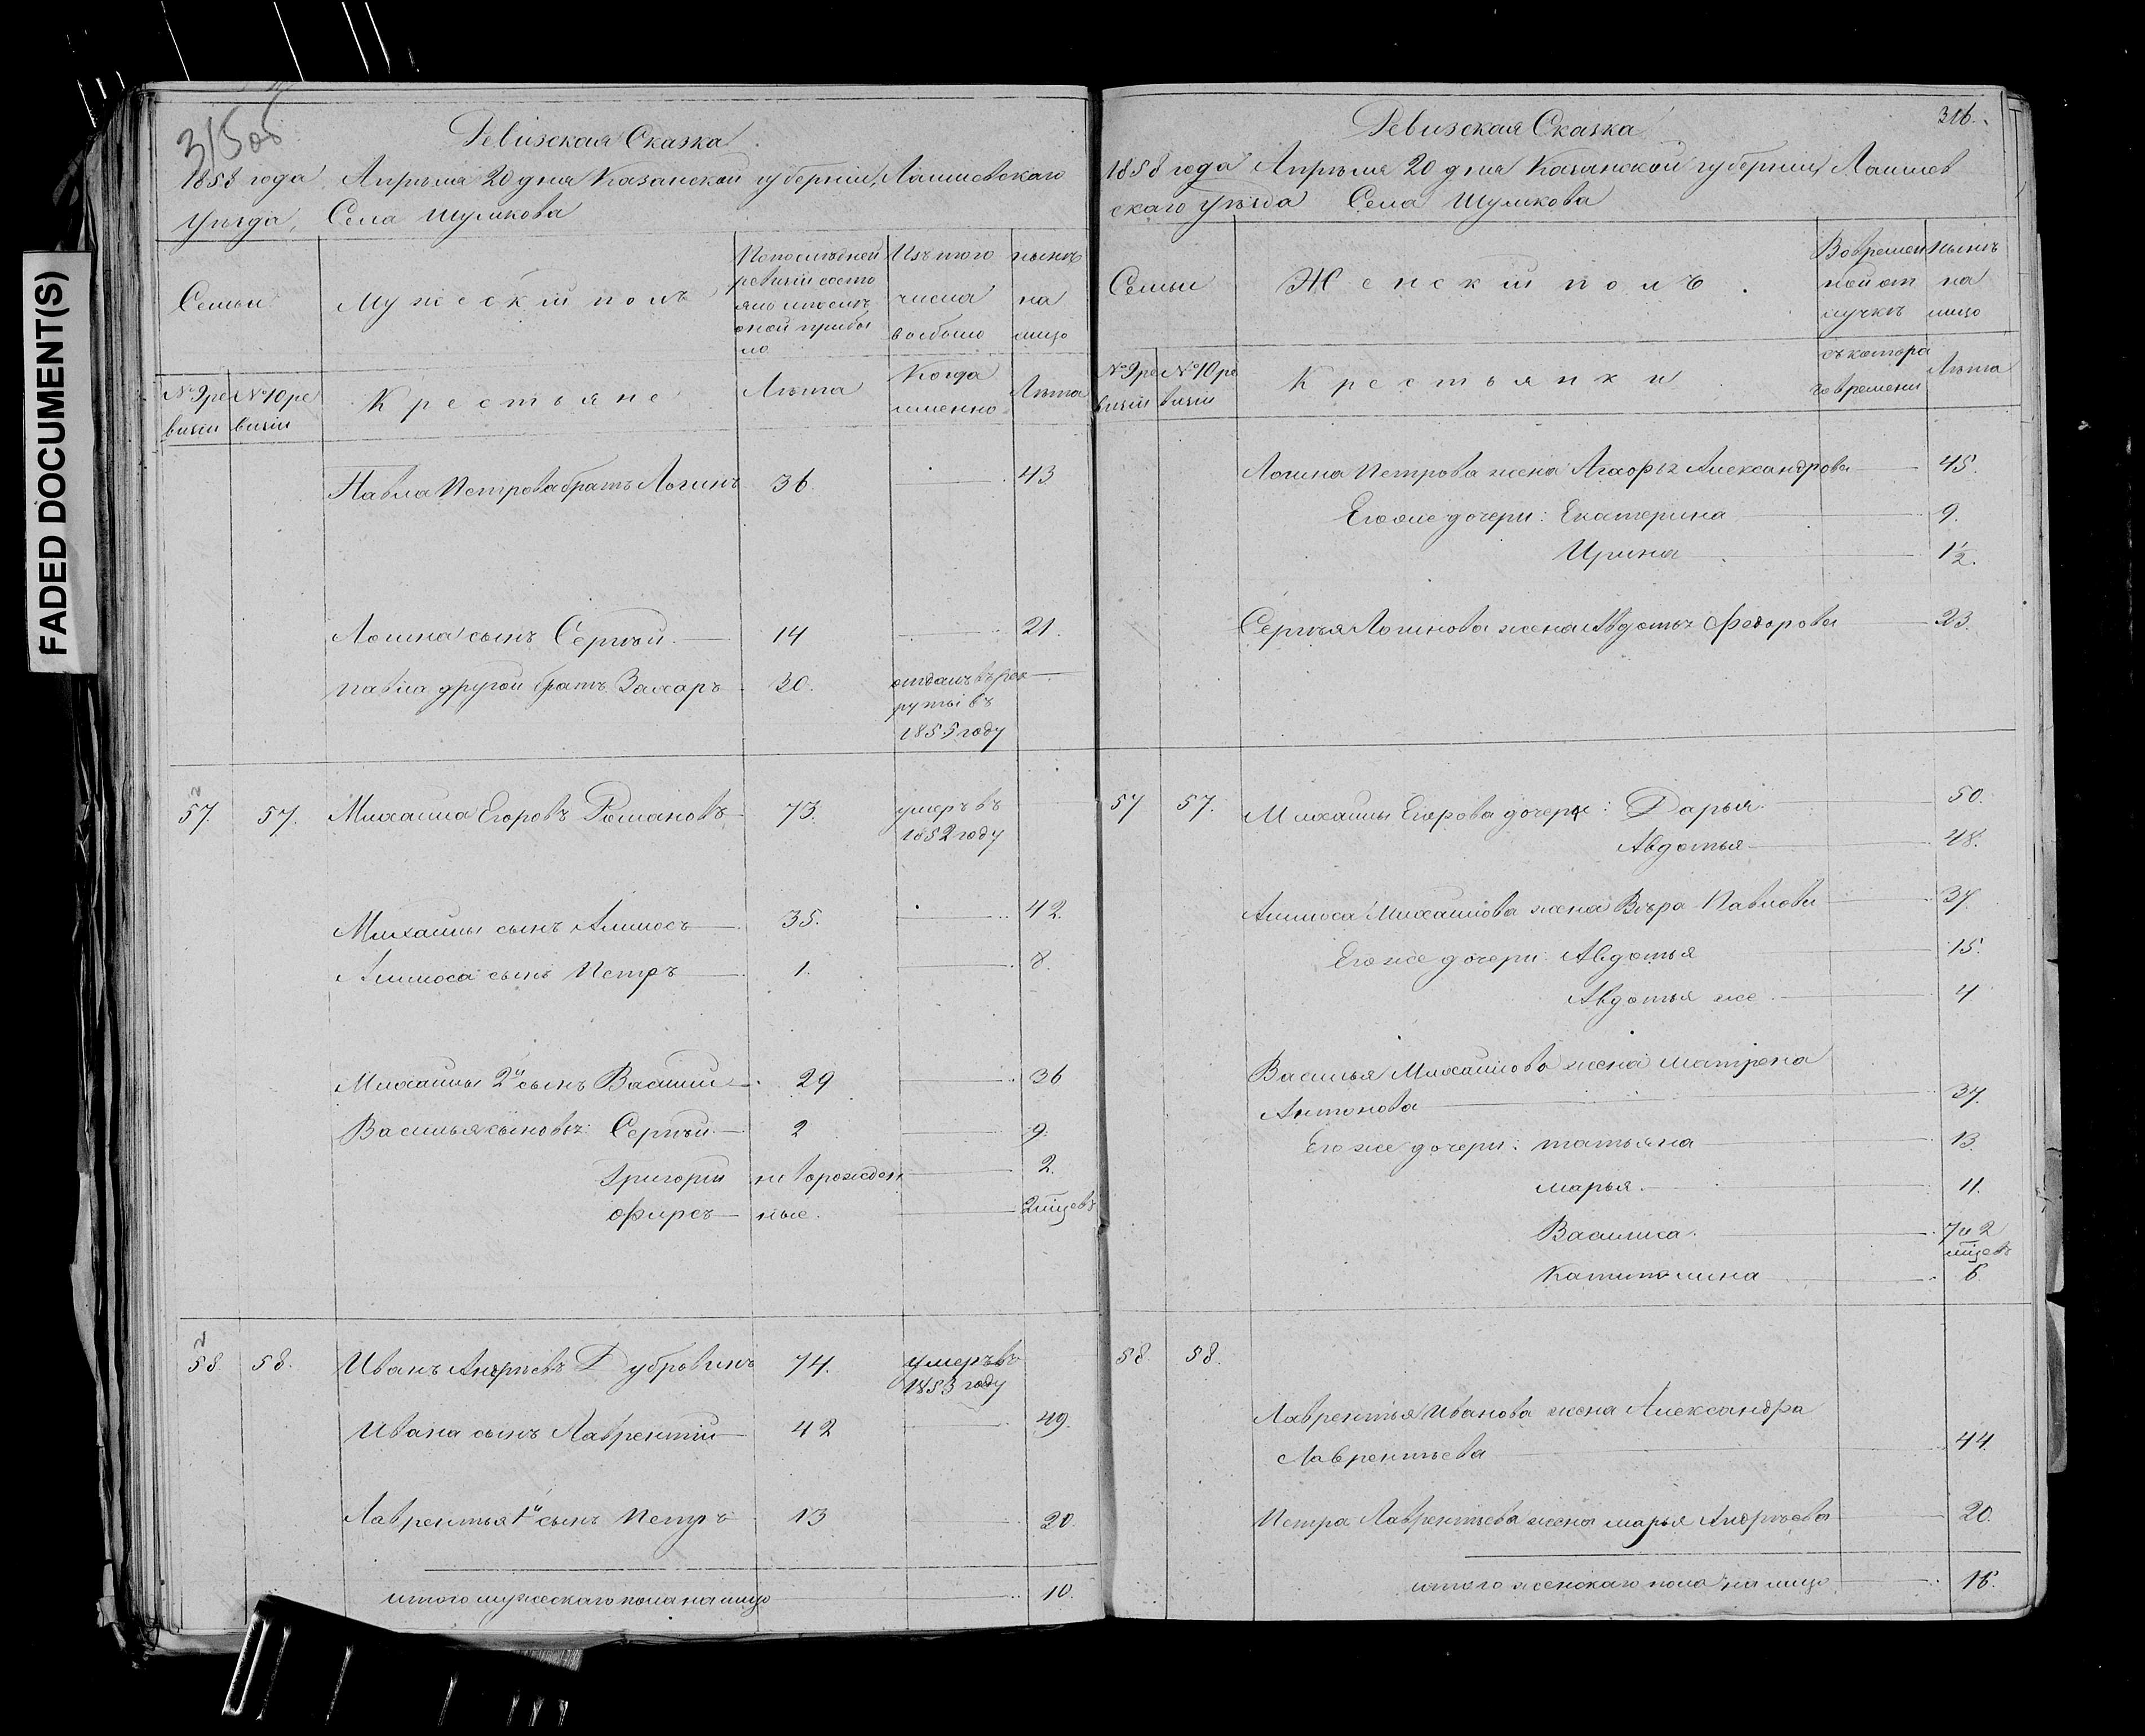 FADED DOCUMENT(S)
315об
Ревизская Сказка.
1858 года Апрѣля 20 дня Казанской губерніи, Лаишевскаго
Уѣзда, Села Шумкова
Семьи
Мужескій полъ
Попослѣдней
ревизіи состо
яло и послѣ
оной прибы
ло
Изъ того
числа
выбыло
нынѣ
на
лицо
№ 9 ре
визіи
№ 10 ре
визіи
Крестьяне
Лѣта
Когда
именно
Лѣта
Павла Петрова братъ Логинъ 36. 43
Логина сынъ Сергѣй 14 21.
Павла другой братъ Захаръ 30. отданъ въ рек
руты въ
1855 году
57. 57. Михаила Егоровъ Романовъ 73. умеръ въ
1852 году
Михайлы сынъ Амносъ 35. 42.
Амноса сынъ Петръ 1. 8.
Михайлы 2й сынъ Василій 29 36
Василья сыновья: Сергѣй 2 9.
Григорій неворожден 2.
Фирсъ ные. 2 мцевъ
58. 58. Иванъ Андреевъ Дубровинъ 74. умеръ въ
1853 году
Ивана сынъ Лаврентій 42 49.
Лаврентья 1й сынъ Петръ 13 20.
итого мужескаго пола на лицо 10.
316.
Ревизская Сказка
1858 года Апрѣля 20 дня Казанской губерніи, Лаишев
скаго Уѣзда Села Шумкова
Семьи
Женскій полъ.
Вовремен
ной от
лучкѣ
Нынѣ
на
лицо
№ 9 ре
визіи
№ 10 ре
визіи
Крестьянки
съ котора
го времени
Лѣта
Логина Петрова жена Агафья Александрова 45.
Его же дочери: Екатерина 9.
Ирина 1½.
Сергѣя Логинова жена Авдотья Федорова 23.
57 57. Михайлы Егорова дочери: Дарья 50.
Авдотья 48.
Амноса Михайлова жена Вѣра Павлова 37
Его же дочери: Авдотья 15.
Авдотья же 4
Василья Михайлова жена Матрена
Антонова 37.
Его же дочери: Татьяна 13.
Марья. 11.
Василиса. 7 и 2
мцевъ
Капитолина 6
58. 58.
Лаврентья Иванова жена Александра
Лаврентьева 44.
Петра Лаврентьева жена Марья Андреева 20.
итого женскаго пола на лицо 16.